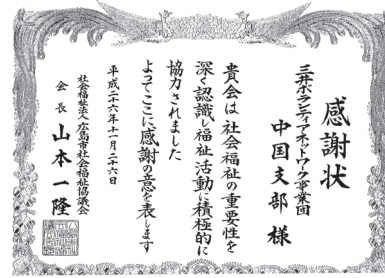 感謝状
三井ボランティアネットワーク事業団
中国支部 様
貴会は社会福祉の重要性を
深く認識し福祉活動に積極的に
協力されました
よってここに感謝の意を表します
平成二十六年十一月二十六日
社会福祉法人広島市社会福祉協議会
会長 山本一隆